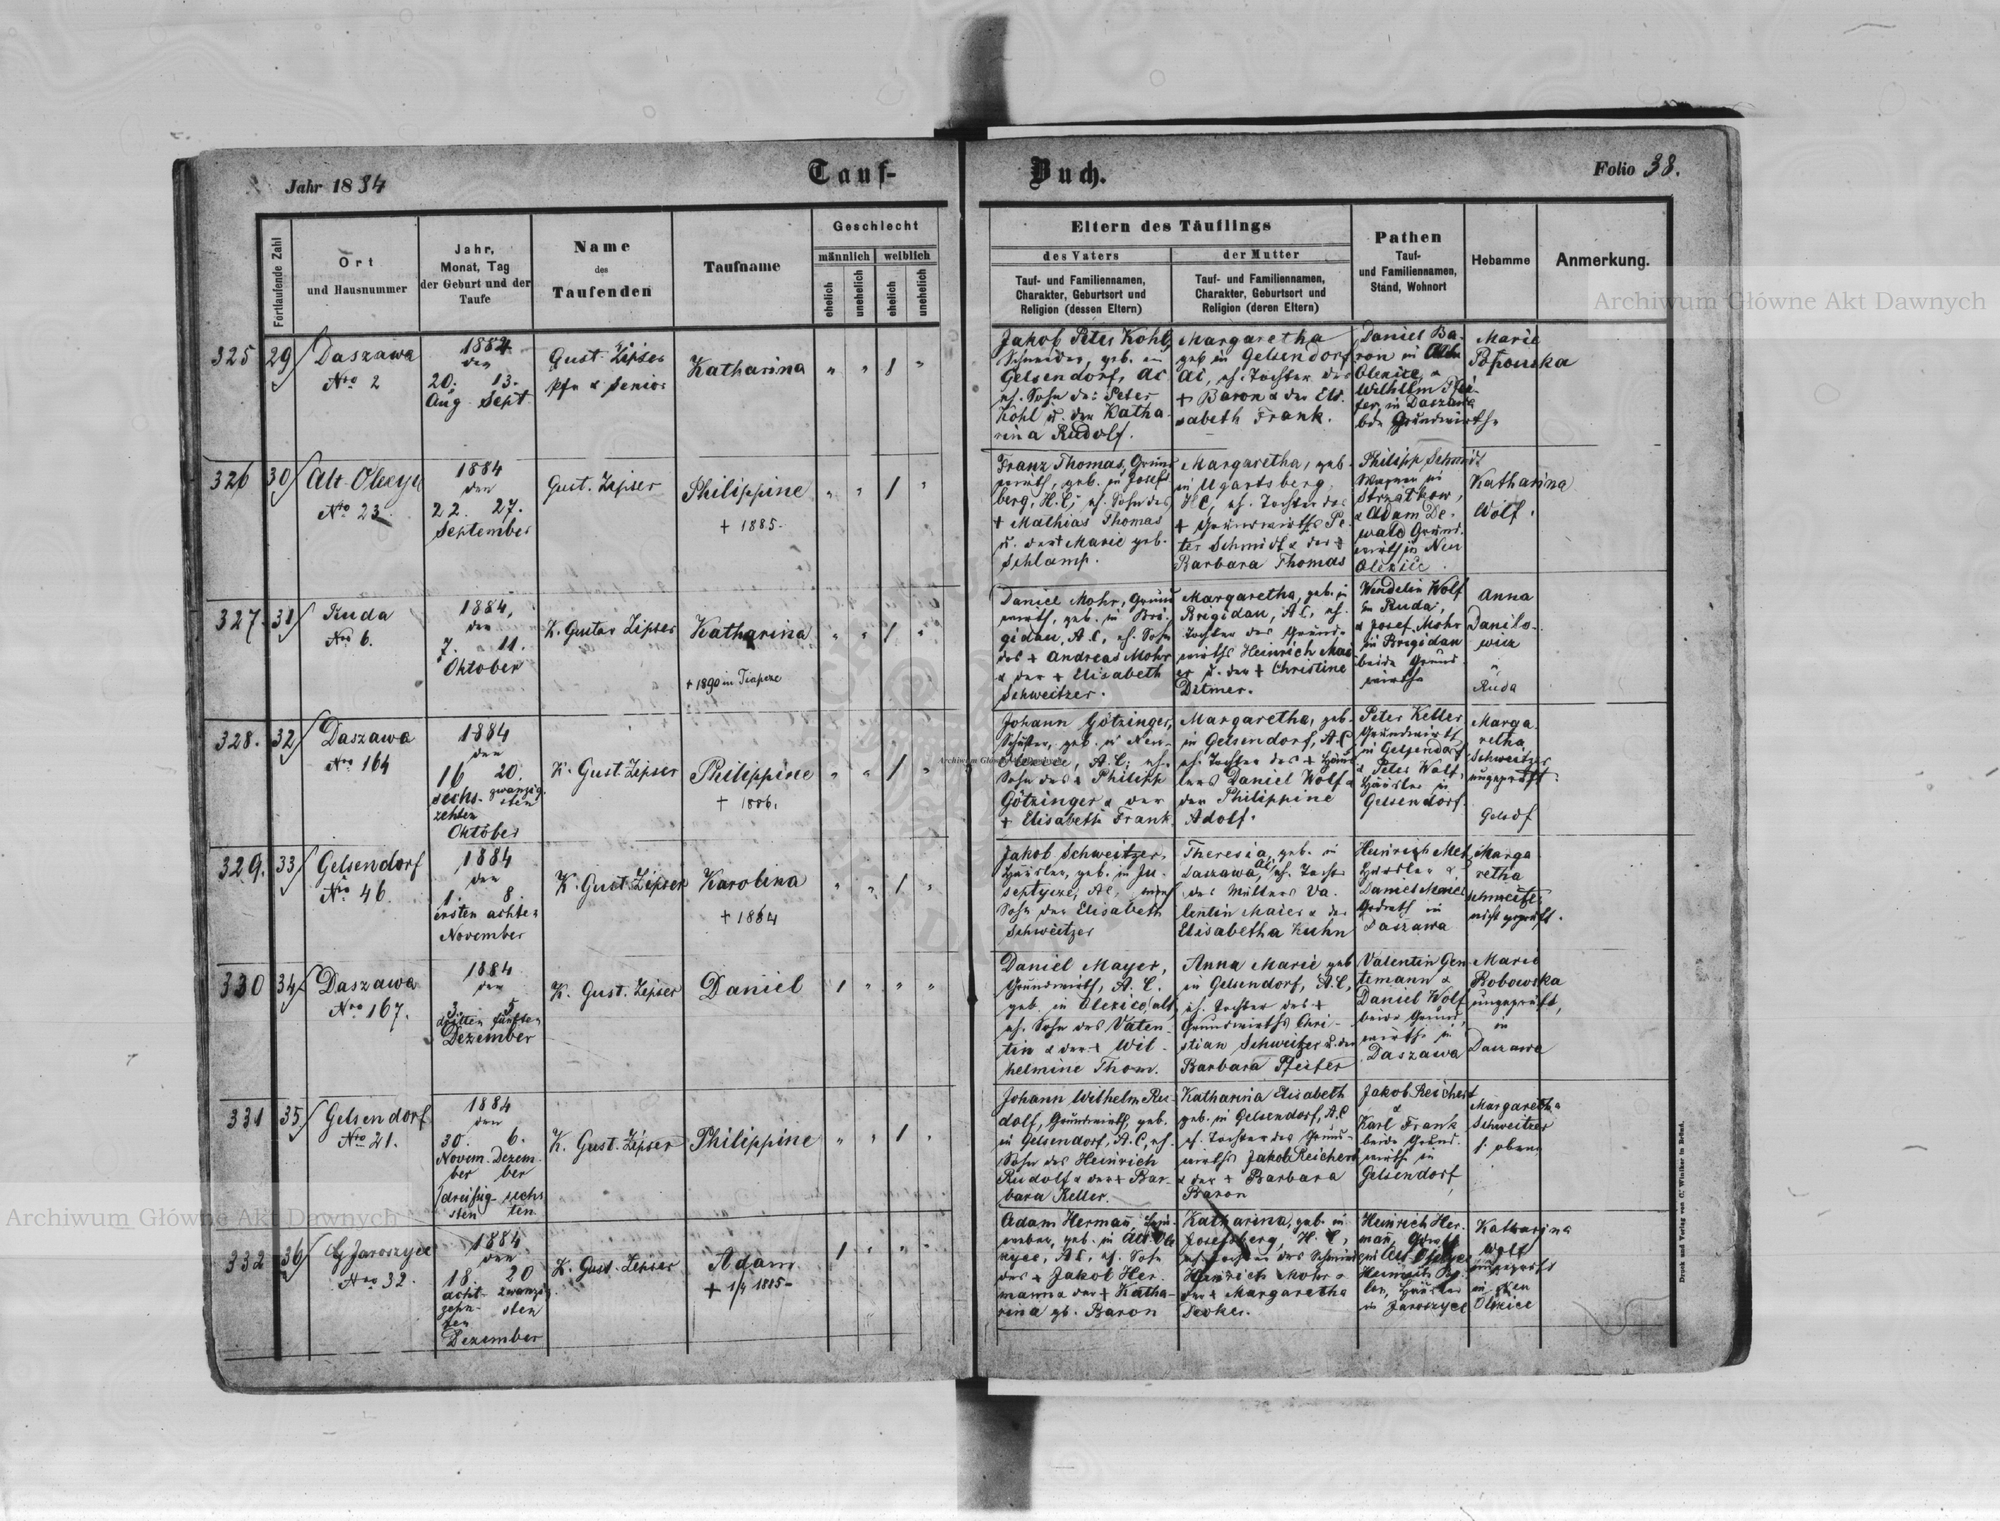 Archiwum Główne Akt Dawnych
Jahr 1884
Tauf-
Buch.
Folio 38.
Fortlaufende Zahl
Ort
und Hausnummer
Jahr,
Monat, Tag
der Geburt und der
Taufe
Name
des
Taufenden
Taufname
Geschlecht
männlich weiblich
ehelich
unehelich
ehelich
unehelich
Eltern des Täuflings
des Vaters
Tauf- und Familiennamen,
Charakter, Geburtsort und
Religion (dessen Eltern)
der Mutter
Tauf- und Familiennamen,
Charakter, Geburtsort und
Religion (deren Eltern)
Pathen
Tauf-
und Familiennamen,
Stand, Wohnort
Hebamme
Anmerkung.
325 29
Daszawa
Nro 2
1884
den
20. 13.
Aug. Sept.
Gust. Zipser
Pfr & Senior
Katharina
" " 1 "
Jakob Peter Kohl,
Schneider, geb. in
Gelsendorf, AC
eh. Sohn des Peter
Kohl u. der Katha-
rina Rudolf.
Margaretha
geb in Gelsendorf
AC, eh. Tochter des
+ Baron & der Eli-
sabeth Frank.
Daniel Ba-
ron in Alt
Olexice &
Wilhelm Pfei-
fer, in Daszawa
bde Grundwirthe
Marie
Popouska
326 30
Alt Olexyce
Nro 23
1884
den
22. 27.
September
Gust. Zipser
Philippine
+ 1885.
" " 1 "
Franz Thomas, Grund
wirth, geb. in Josefs
berg, H.C; eh. Sohn des
+ Mathias Thomas
u. der + Marie geb.
Schlamp.
Margaretha, geb.
in Ugartsberg
H C, eh. Tochter des
+ Grundwirths Pe-
ter Schmidt & der +
Barbara Thomas
Philipp Schmidt
Wagner in
Strzatkow,
& Adam De-
wald Grund-
wirth in Neu
Olexice.
Katharina
Wolf.
327. 31
Ruda
Nro 6.
1884,
den
7. 11.
Oktober
K. Gustav Zipser
Katharina
+ 1890 in
" " 1 "
Daniel Mohr, Grund
wirth, geb. in Bri-
gidau, A C, eh. Sohn
des + Andreas Mohr
& der + Elisabeth
Schweitzer.
Margaretha, geb. in
Brigidau, AC, eh.
Tochter des Grund-
wirths Heinrich Mai
er u. der + Christine
Ditmer.
Wendelin Wolf
in Ruda,
& Josef Mohr
in Brigidau
beide Grund
wirthe
Anna
Danilo-
wicz
in
Ruda
328. 32
Daszawa
Nro 164
1884
den
16 20.
sechs- zwanzig-
zehten sten
Oktober
K. Gust Zipser
Philippine
+ 1886.
" " 1 "
Johann Götzinger,
Schuster, geb. in Neu-
Olexice, A.C; eh.
Sohn des + Philipp
Götzinger & der
+ Elisabeth Frank
Margaretha, geb.
in Gelsendorf, A.C
eh. Tochter des + Häus
lers Daniel Wolf &
der Philippine
Adolf.
Peter Keller
Grundwirth
in Gelsendorf
& Peter Wolf,
Häusler in
Gelsendorf.
Marga
retha
Schweitzer
ungeprüft.
Gelsdf
329. 33
Gelsendorf
No 46.
1884
den
1. 8.
ersten achten
November
K. Gust. Zipser
Karolina
+ 1884
" " 1 "
Jakob Schweitzer,
Häusler, geb. in Ju-
septycze, AC,
Sohn der Elisabeth
Schweitzer
Theresia, geb. in
Daszawa, AC, eh. Tochter
des Müllers Va-
lentin Maier & der
Elisabetha Kuhn
Heinrich
Häusler &
Daniel Maier
in
Daszawa
Marga
retha
Schweitzer
nicht geprüft.
330 34
Daszawa
Nro 167.
1884
den
3. 5.
dritten fünften
Dezember
K. Gust. Zipser
Daniel
1 " " "
Daniel Mayer,
Grundwirth, A.C.
geb. in Olexice alt
eh. Sohn des Valen-
tin & der + Wil-
helmine Thom.
Anna Marie geb
in Gelsendorf, A.C,
eh. Tochter des +
Grundwirths Chri-
stian Schweitzer u. der
Barbara Pfeifer
Valentin Gen
temann &
Daniel Wolf
beide Grund
wirthe in
Daszawa
Marie
Bobowska
ungeprüft,
in
Daszawa
331 35
Gelsendorf
Nro 21.
1884
den
30. 6.
Novem- Dezem-
ber ber
dreißig- sechs
sten ten
K. Gust. Zipser
Philippine
" " 1 "
Johann Wilhelm Ru-
dolf, Grundwirth, geb.
in Gelsendorf, A.C, eh.
Sohn des Heinrich
Rudolf & der + Bar-
bara Keller.
Katharina Elisabeth
geb. in Gelsendorf, A.C
eh. Tochter des Grund-
wirths Jakob Reichert
& der + Barbara
Baron
Jakob Reichert
&
Karl Frank
beide Grund-
wirthe in
Gelsendorf
Margaretha
Schweitzer
s. oben
332 36
Jaroszyce
Nro 32.
1884.
den
18. 20
acht- zwanzig
zehn- sten
ten
Dezember
K. Gust. Zipser
Adam
+ 1/4 1885-
1 " " "
Adam Herman,
weber, geb. in Alt Ole
xyce, AC, eh. Sohn
des + Jakob Her-
mann & der + Katha-
rina gb. Baron
Katharina, geb. in
Josefsberg, H. C,
eh. Tochter des Schmied
Heinrich Mohr &
der + Margaretha
Decker.
Heinrich Her-
man, Grwth
in Alt Olexyce
Heinrich
Häusler
in Jaroszyce
Katharina
Wolf
ungeprüft
in Neu
Olexice
Druck und Verlag von C. Winiker in Brünn.
Archiwum Główne Akt Dawnych
Archiwum Główne Akt Dawnych